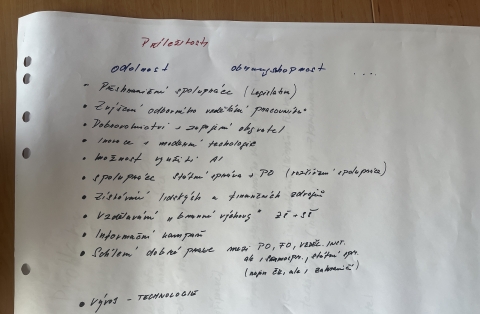 Příležitosti
odolnost obranyschopnost ...
- Přeshraniční spolupráce (legislativa)
- Zvýšení odborného vzdělání pracovníků
- Dobrovolnictví + zapojení obyvatel
- Inovace + moderní technologie
- Možnost využití AI
- spolupráce státní správa + PO (rozšíření spolupráce)
- Získávání lidských a finančních zdrojů
- Vzdělávání "branné výchovy" ZŠ + SŠ
- Informační kampaň
- Sdílení dobré praxe mezi PO, FO, vzděl. inst.
ak i samospr., státní spr.
(např. ČR, ale i zahraničí)
- Vývoj - TECHNOLOGIE